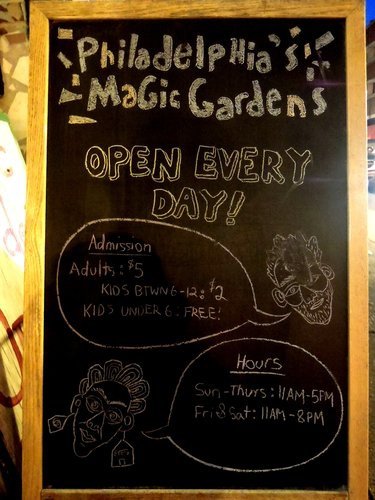 Philadelphia's
Magic Gardens
OPEN EVERY
DAY!
Admission
Adults: $5
KIDS BTWN 6-12: $2
KIDS UNDER 6: FREE!
Hours
Sun-Thurs: 11AM-5PM
Fri & Sat: 11AM-8PM